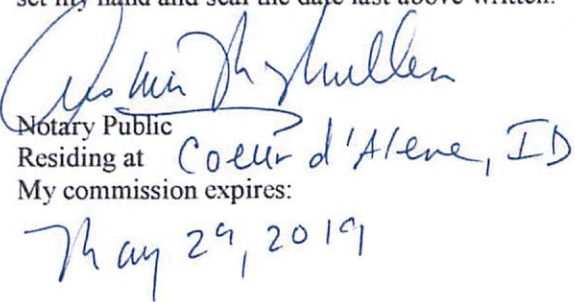 set my hand and seal the date last above written.
Notary Public
Residing at Coeur d'Alene, ID
My commission expires:
May 29, 2019